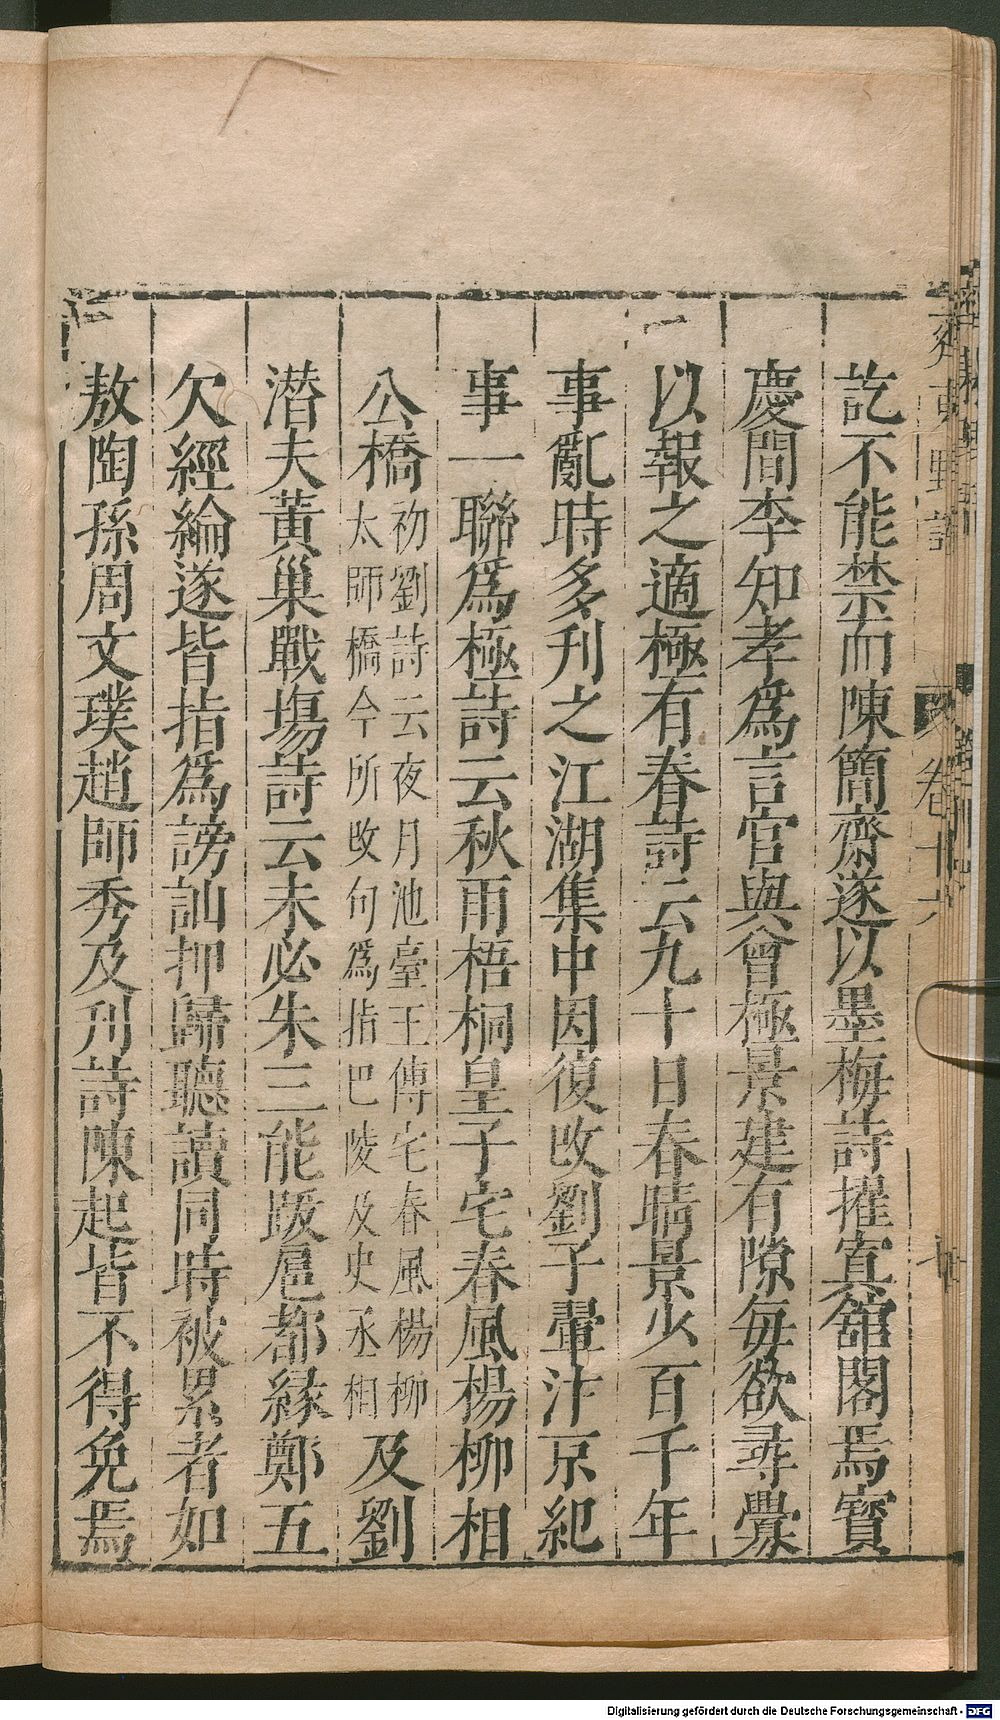 訖不能禁而陳簡齋遂以墨梅詩擢寘舘閣焉寳
慶間李知孝爲言官與曾極景建有隙每欲尋釁
以報之適極有春詩云九十日春晴景少百千年
事亂時多刋之江湖集中因復改劉子翬汴京紀
事一聯爲極詩云秋雨梧桐皇子宅春風楊柳相
公橋
初劉詩云夜月池臺王傳宅春風楊柳
太師橋今所改句爲指巴陵及史丞相
及劉
潜夫黃巢戰塲詩云未必朱三能跋扈都緣鄭五
欠經綸遂皆指爲謗訕押歸聽讀同時被累者如
敖陶孫周文璞趙師秀及刋詩陳起皆不得免焉
野語
卷十六
Digitalisierung gefördert durch die Deutsche Forschungsgemeinschaft - DFG